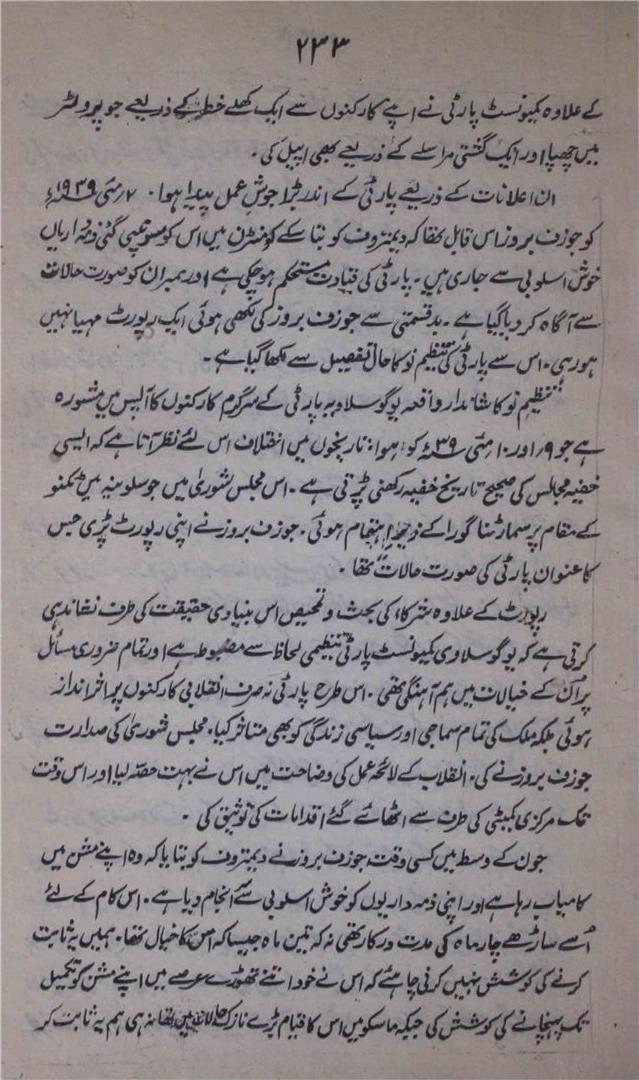 ۲۳۳
کے علاوہ کمیونسٹ پارٹی نے اپنے کارکنوں سے ایک کھلے خط کے ذریعے جو پرولتر
میں چھپا اور ایک گشتی مراسلے کے ذریعے بھی اپیل کی۔
ان اعلانات کے ذریعے پارٹی کے اندر بڑا جوشِ عمل پیدا ہوا۔ ۷ مئی ۱۹۳۹ء
کو جوزف بروز اس قابل تھا کہ دیمتروف کو بتا سکے کہ اس کو سونپی گئی ذمہ داریاں
خوش اسلوبی سے جاری ہیں۔ پارٹی کی قیادت مستحکم ہو چکی ہے اور ممبران کو صورت حالات
سے آگاہ کر دیا گیا ہے۔ بدقسمتی سے جوزف بروز کی لکھی ہوئی ایک رپورٹ مہیا نہیں
ہو رہی۔ اس سے پارٹی کی تنظیم نو کا حال تفصیل سے لکھا گیا ہے۔
تنظیم نو کا شاندار واقعہ یوگوسلاویہ پارٹی کے سرگرم کارکنوں کا آپس میں مشورہ
ہے جو ۹ اور ۱۰ مئی ۳۹ء کو ہوا: تاریخوں میں اختلاف اس لئے نظر آتا ہے کہ ایسی
خفیہ مجالس کی صحیح تاریخ خفیہ رکھنی پڑتی ہے۔ اس مجلس شوریٰ میں جو سلوینیہ میں
کے مقام پر سمارٹنا گورا کے انجام ہوئی۔ جوزف بروز نے اپنی رپورٹ پڑی جس
کا عنوان پارٹی کی صورت حالات تھا۔
رپورٹ کے علاوہ شرکاء کی بحث و تمحیص اس بنیادی حقیقت کی طرف نشاندہی
کرتی ہے کہ یوگوسلاوی کمیونسٹ پارٹی تنظیمی لحاظ سے مضبوط ہے اور تمام ضروری مسائل
پر اُن کے خیالات میں ہم آہنگی تھی۔ اس طرح پارٹی نہ صرف انقلابی کارکنوں پر اثر انداز
ہوئی بلکہ ملک کی تمام سماجی اور سیاسی زندگی کو بھی متاثر کیا۔ مجلس شوریٰ کی صدارت
جوزف بروز نے کی۔ انقلاب کے لائحہ عمل کی وضاحت میں اس نے بہت حصہ لیا اور اس وقت
تک مرکزی کمیٹی کی طرف سے اٹھائے گئے اقدامات کی توثیق کی۔
جون کے وسط میں کسی وقت جوزف بروز نے دیمتروف کو بتایا کہ وہ اپنے مشن میں
کامیاب رہا ہے اور اپنی ذمہ داریوں کو خوش اسلوبی سے انجام دیا ہے۔ اس کام کے لئے
اُسے ساڑھے چار ماہ کی مدت درکار تھی نہ کہ تین ماہ جیسا کہ اس کا خیال تھا۔ ہمیں یہ ثابت
کرنے کی کوشش نہیں کرنی چاہئے کہ اس نے خود اتنے تھوڑے عرصے میں اپنے مشن کو تکمیل
تک پہنچانے کی کوشش کی جبکہ ماسکو میں اس کا قیام بڑے نازک حالات میں تھا نہ ہی ہم یہ ثابت کر